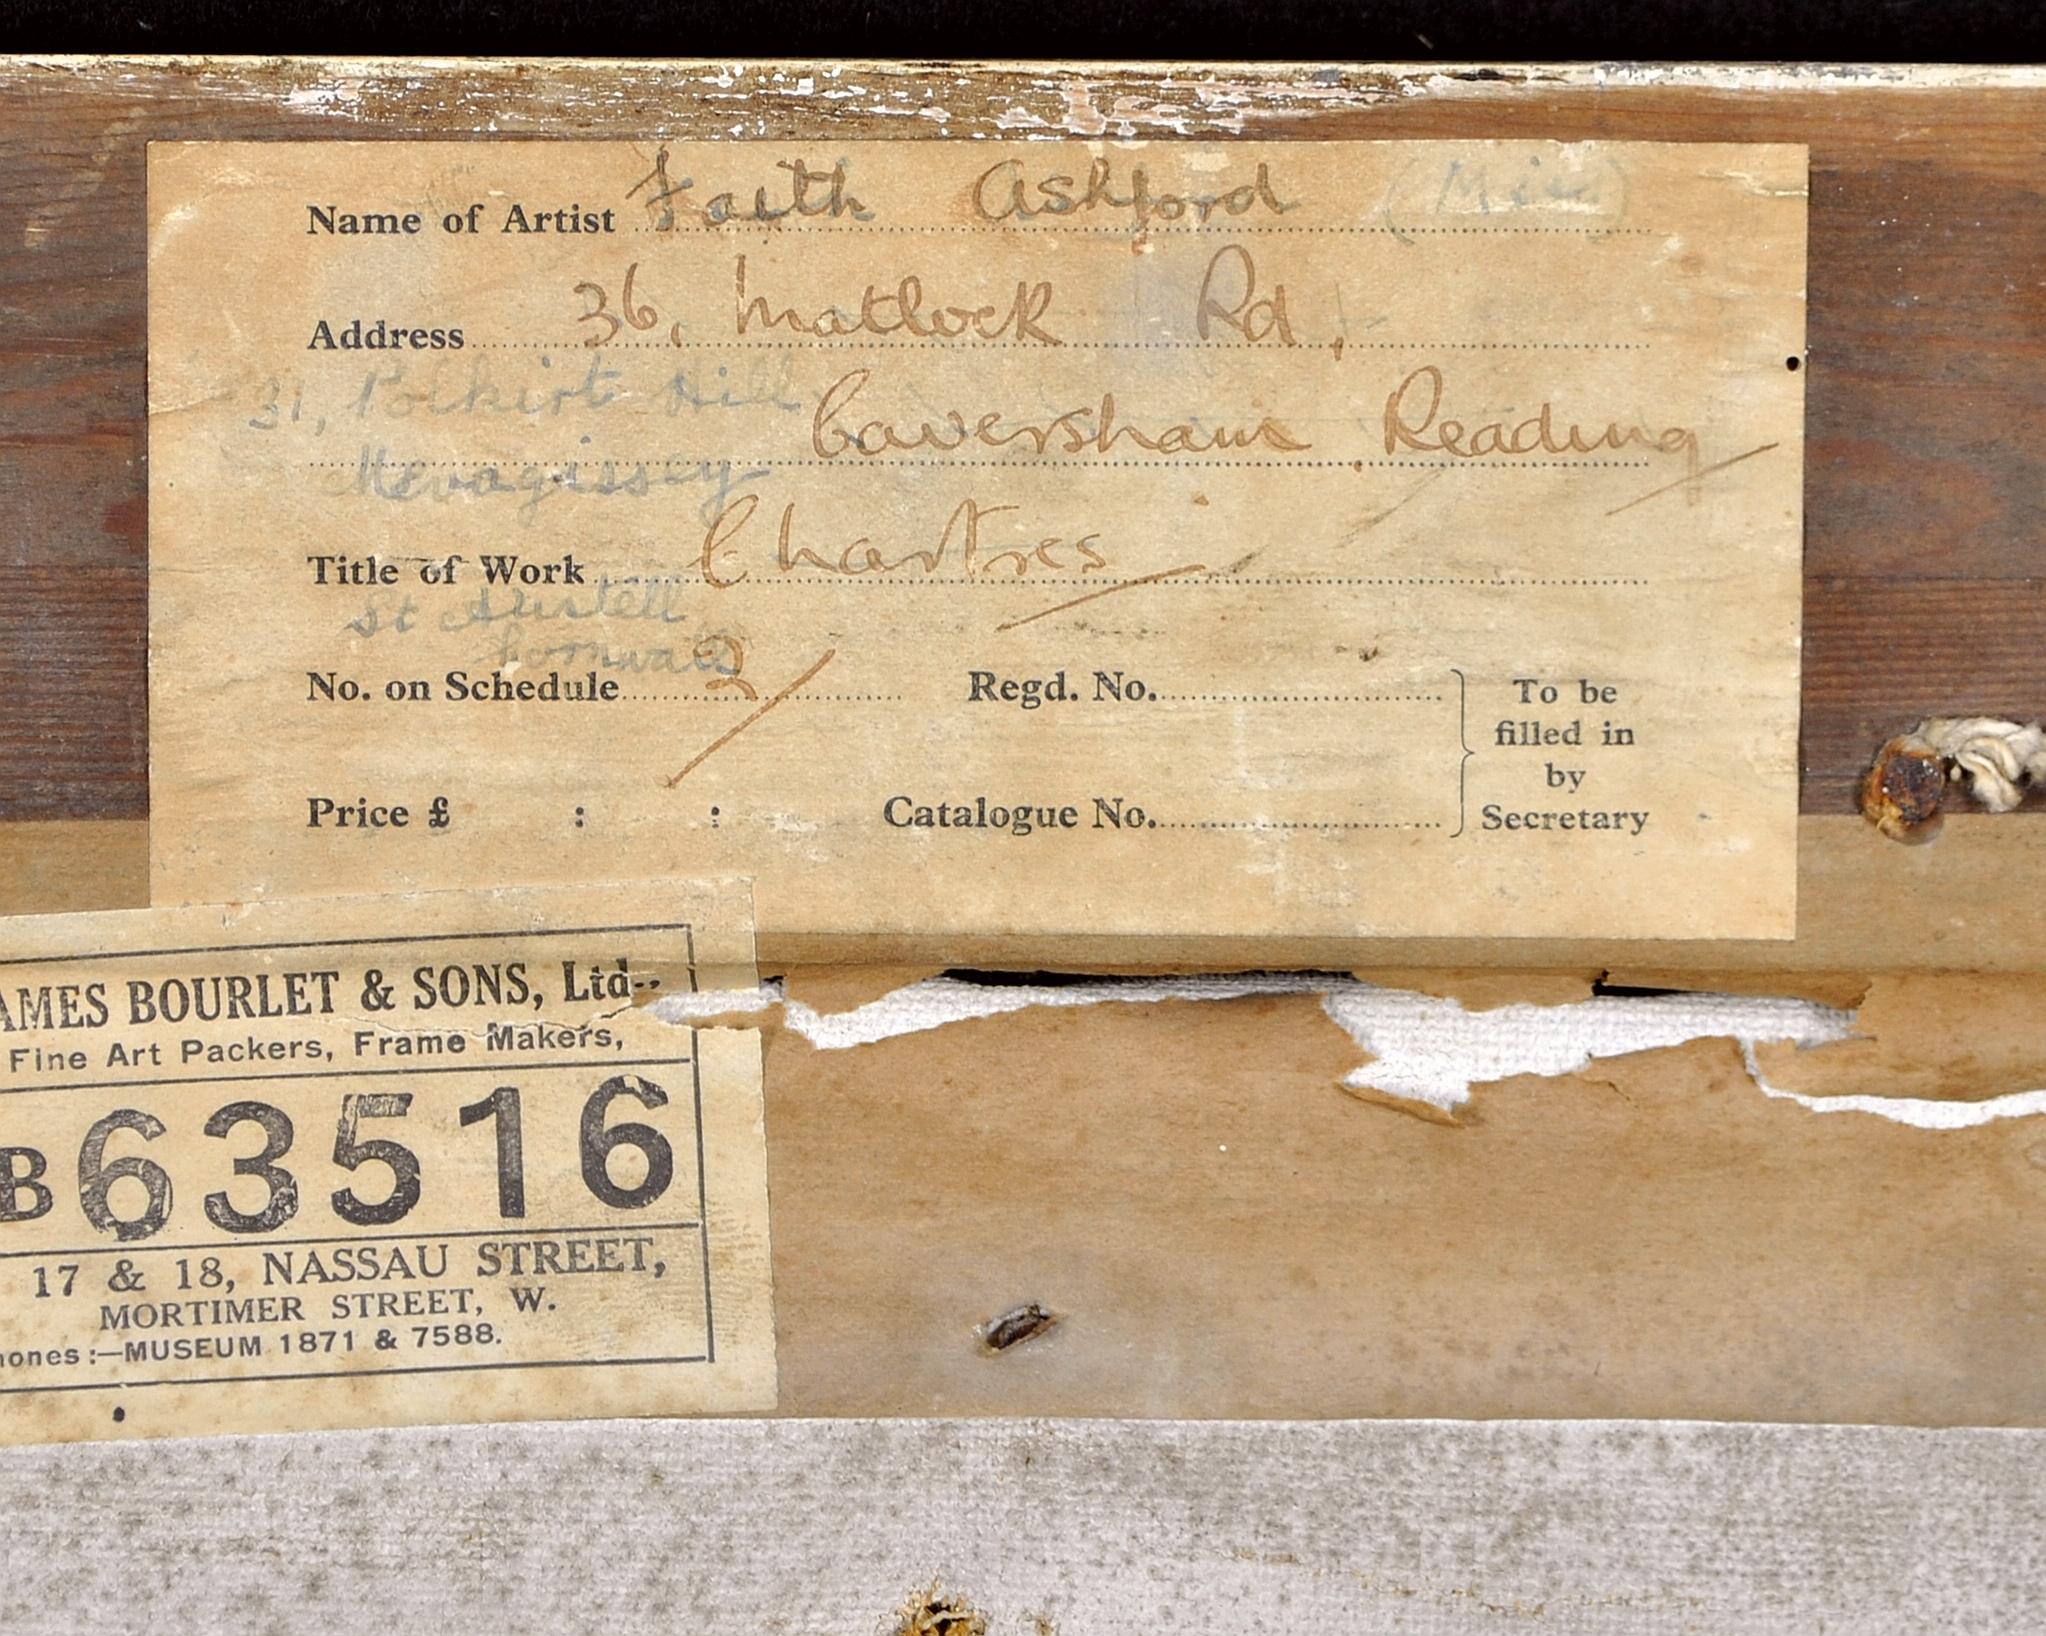 Name of Artist Faith Ashford (Miss)
Address 36, Matlock Rd,
31, Polkirt Hill
Caversham Reading
Mevagissey
Title of Work Chartres
St Austell
Cornwall
No. on Schedule 2 Regd. No. To be
filled in
by
Price £ : : Catalogue No. Secretary
AMES BOURLET & SONS, Ltd.,
Fine Art Packers, Frame Makers,
B63516
17 & 18, NASSAU STREET,
MORTIMER STREET, W.
hones:—MUSEUM 1871 & 7588.